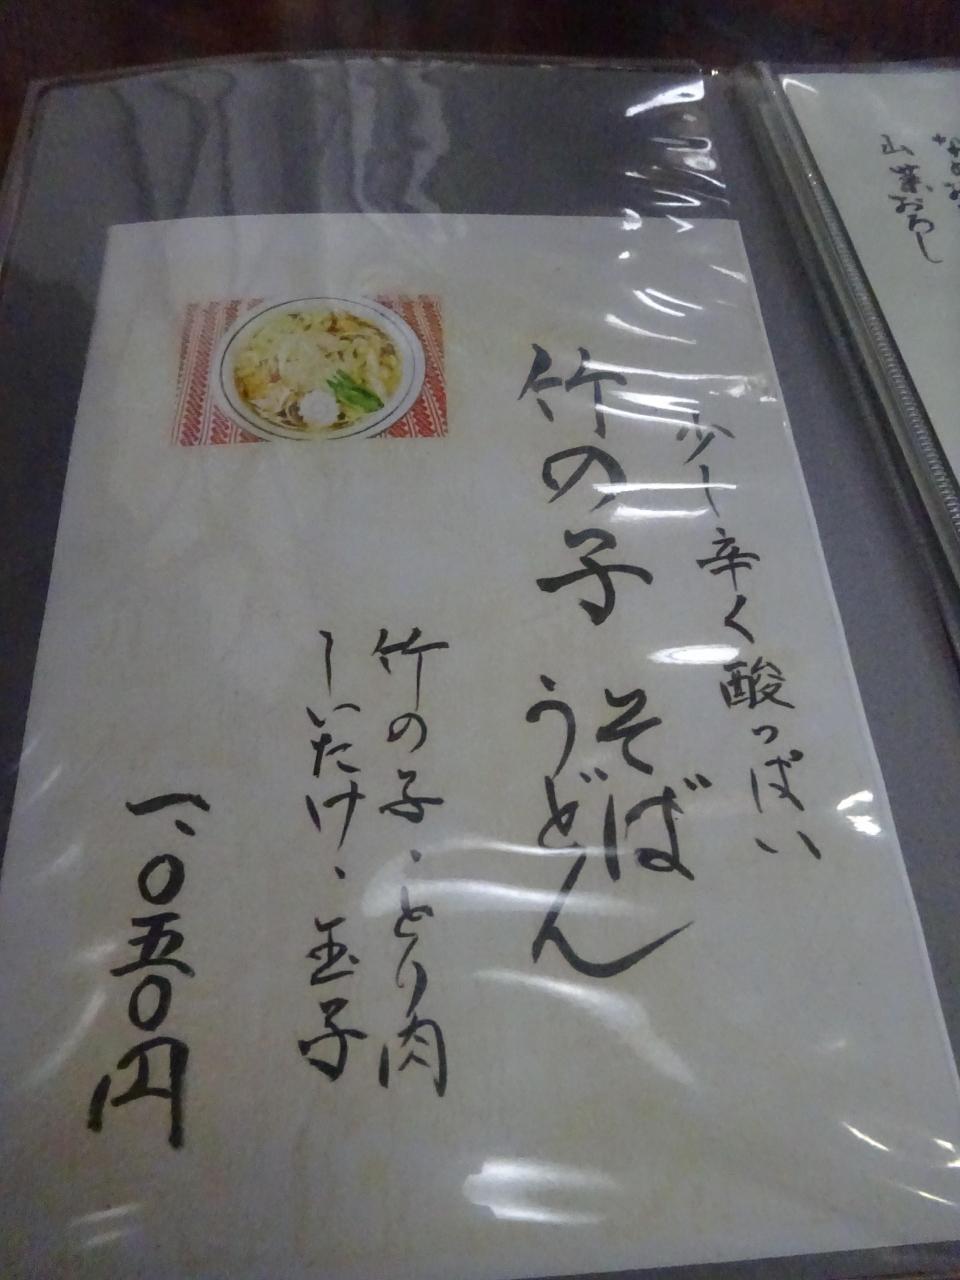 山菜おろし
少し辛く酸っぱい
竹の子 そば
うどん
竹の子、とり肉
しいたけ、玉子
一、〇五〇円